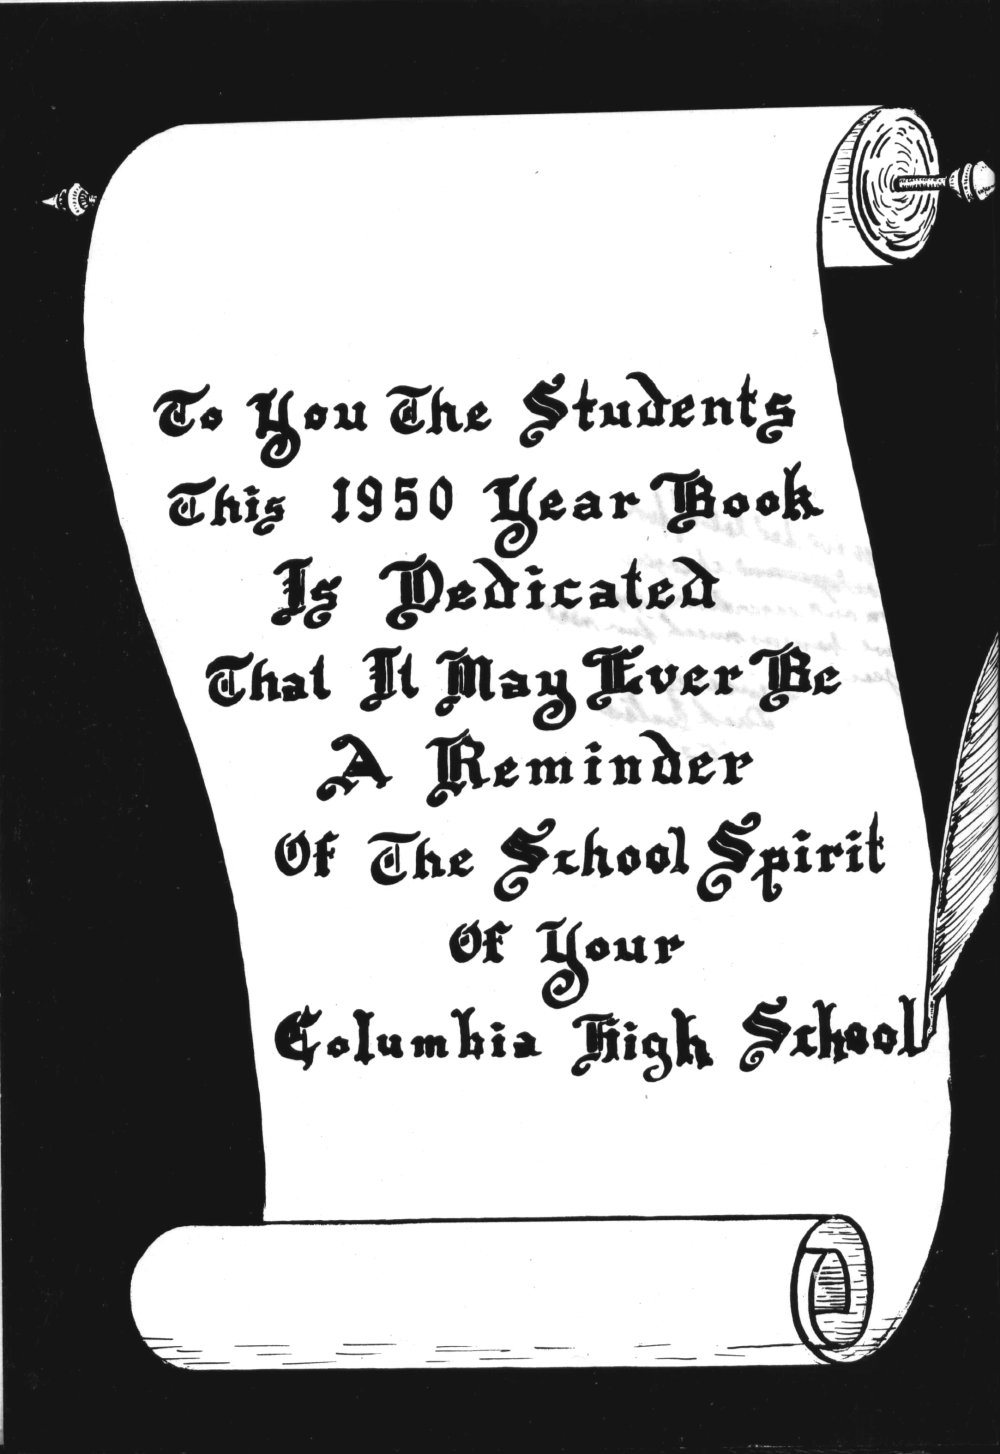 To You The Students
This 1950 Year Book
Is Dedicated
That It May Ever Be
A Reminder
Of The School Spirit
Of Your
Columbia High School